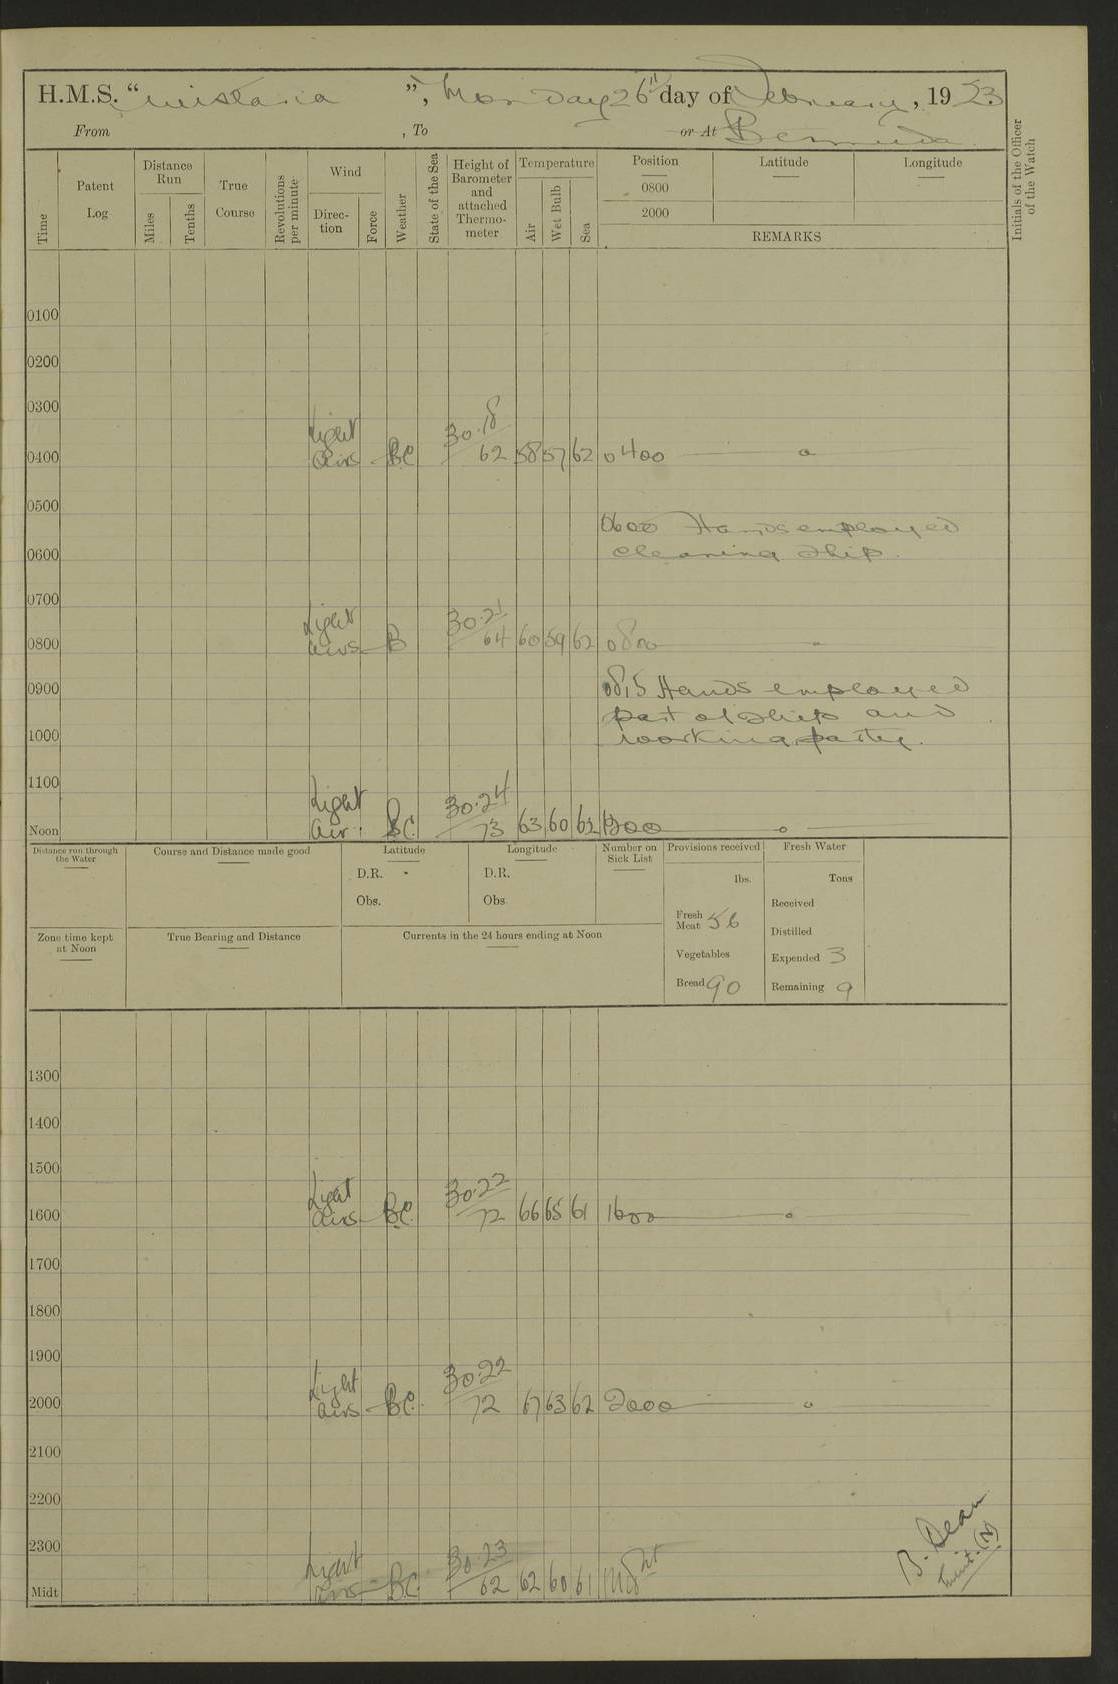 H.M.S. “Wistaria”, Monday 26th day of February, 1923
From , To or At Bermuda
Time
Patent Log
Distance Run
Miles
Tenths
True Course
Revolutions per minute
Wind
Direction
Force
Weather
State of the Sea
Height of Barometer and attached Thermometer
Temperature
Air
Wet Bulb
Sea
Position
0800
2000
Latitude
Longitude
REMARKS
Initials of the Officer of the Watch
0100
0200
0300
Light 30.18
0400 airs BC 62 58 57 62 0400
0500
0600 Hands employed
0600 cleaning ship.
0700
Light 30.21
0800 airs B 64 60 59 62 0800
0900 0815 Hands employed
part of ship and
1000 working party.
1100
Light 30.24
Noon air. BC 73 63 60 62 1200
Distance run through the Water
Course and Distance made good
Latitude
D.R.
Obs.
Longitude
D.R.
Obs
Number on Sick List
Provisions received
lbs.
Fresh Meat 56
Vegetables
Bread 90
Fresh Water
Tons
Received
Distilled
Expended 3
Remaining 9
Zone time kept at Noon
True Bearing and Distance
Currents in the 24 hours ending at Noon
1300
1400
1500
Light 30.22
1600 airs BC. 72 66 65 61 1600
1700
1800
1900
Light 30.22
2000 airs BC. 72 67 63 62 2000
2100
2200
2300
Light 30.23
Midt airs BC. 62 62 60 61 Midt
B. Dean
Lieut. (N)